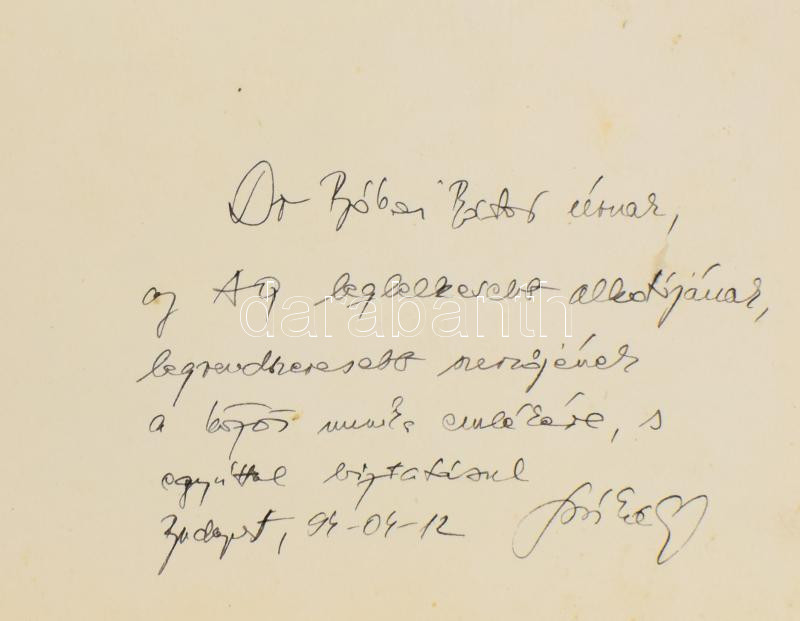 Dr úrnak,
az leglelkesebb alkotójának,
legrendszeresebb szerzőjének
a közös munka emlékére, s
egyúttal biztatásul
Budapest, 94-04-12
darabanth